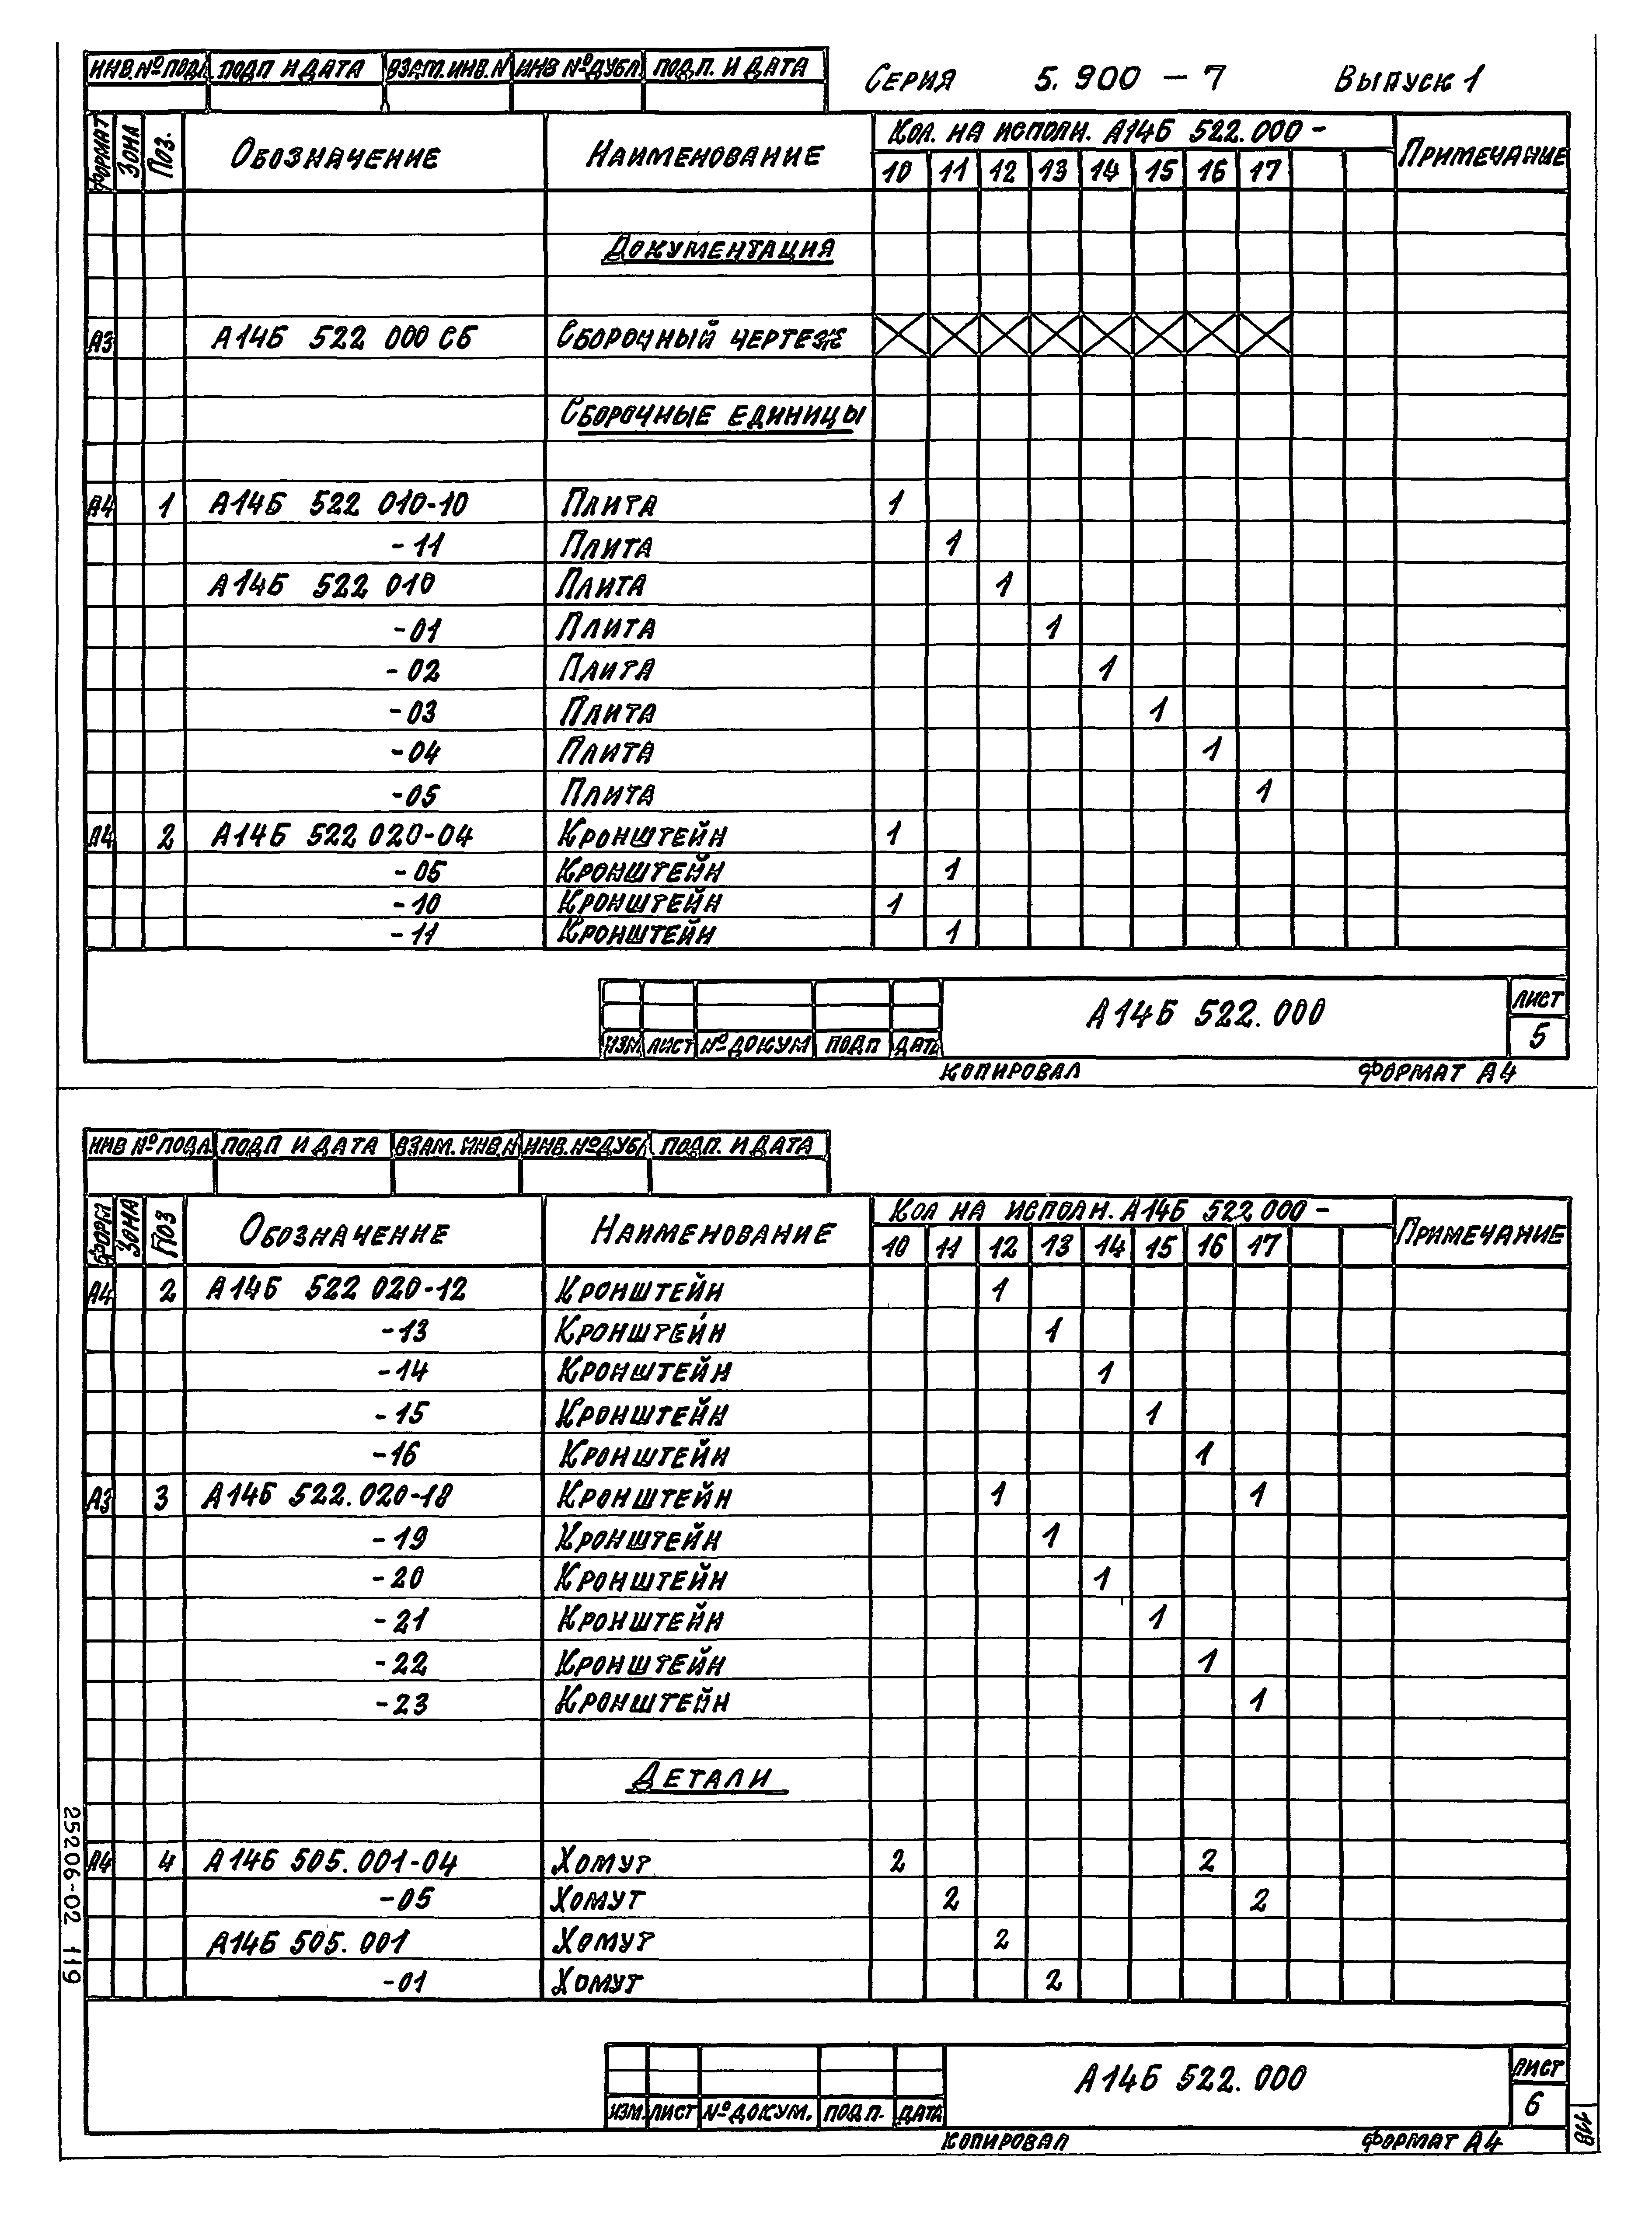 ИНВ.№ПОДЛ ПОДП И ДАТА ВЗАМ.ИНВ.N ИНВ №ДУБЛ ПОДП. И ДАТА Серия 5.900 – 7 Выпуск 1
ФОРМАТ ЗОНА Поз. Обозначение Наименование Кол. на исполн. А14Б 522.000 – Примечание
10 11 12 13 14 15 16 17
Документация
А3 А14Б 522 000 СБ Сборочный чертеж
Сборочные единицы
А4 1 А14Б 522 010-10 Плита 1
-11 Плита 1
А14Б 522 010 Плита 1
-01 Плита 1
-02 Плита 1
-03 Плита 1
-04 Плита 1
-05 Плита 1
А4 2 А14Б 522 020-04 Кронштейн 1
-05 Кронштейн 1
-10 Кронштейн 1
-11 Кронштейн 1
А14Б 522.000 ЛИСТ
5
ИЗМ ЛИСТ №ДОКУМ ПОДП ДАТА
КОПИРОВАЛ ФОРМАТ А4
ИНВ №ПОДЛ. ПОДП И ДАТА ВЗАМ.ИНВ.N ИНВ.№ДУБЛ ПОДП. И ДАТА
ФОРМ ЗОНА Поз Обозначение Наименование Кол на исполн. А14Б 522 000 – Примечание
10 11 12 13 14 15 16 17
А4 2 А14Б 522 020-12 Кронштейн 1
-13 Кронштейн 1
-14 Кронштейн 1
-15 Кронштейн 1
-16 Кронштейн 1
А3 3 А14Б 522.020-18 Кронштейн 1 1
-19 Кронштейн 1
-20 Кронштейн 1
-21 Кронштейн 1
-22 Кронштейн 1
-23 Кронштейн 1
Детали
А4 4 А14Б 505.001-04 Хомут 2 2
-05 Хомут 2 2
А14Б 505.001 Хомут 2
-01 Хомут 2
25206-02 119
А14Б 522.000 ЛИСТ
6
ИЗМ. ЛИСТ №ДОКУМ. ПОДП. ДАТА
КОПИРОВАЛ ФОРМАТ А4
118